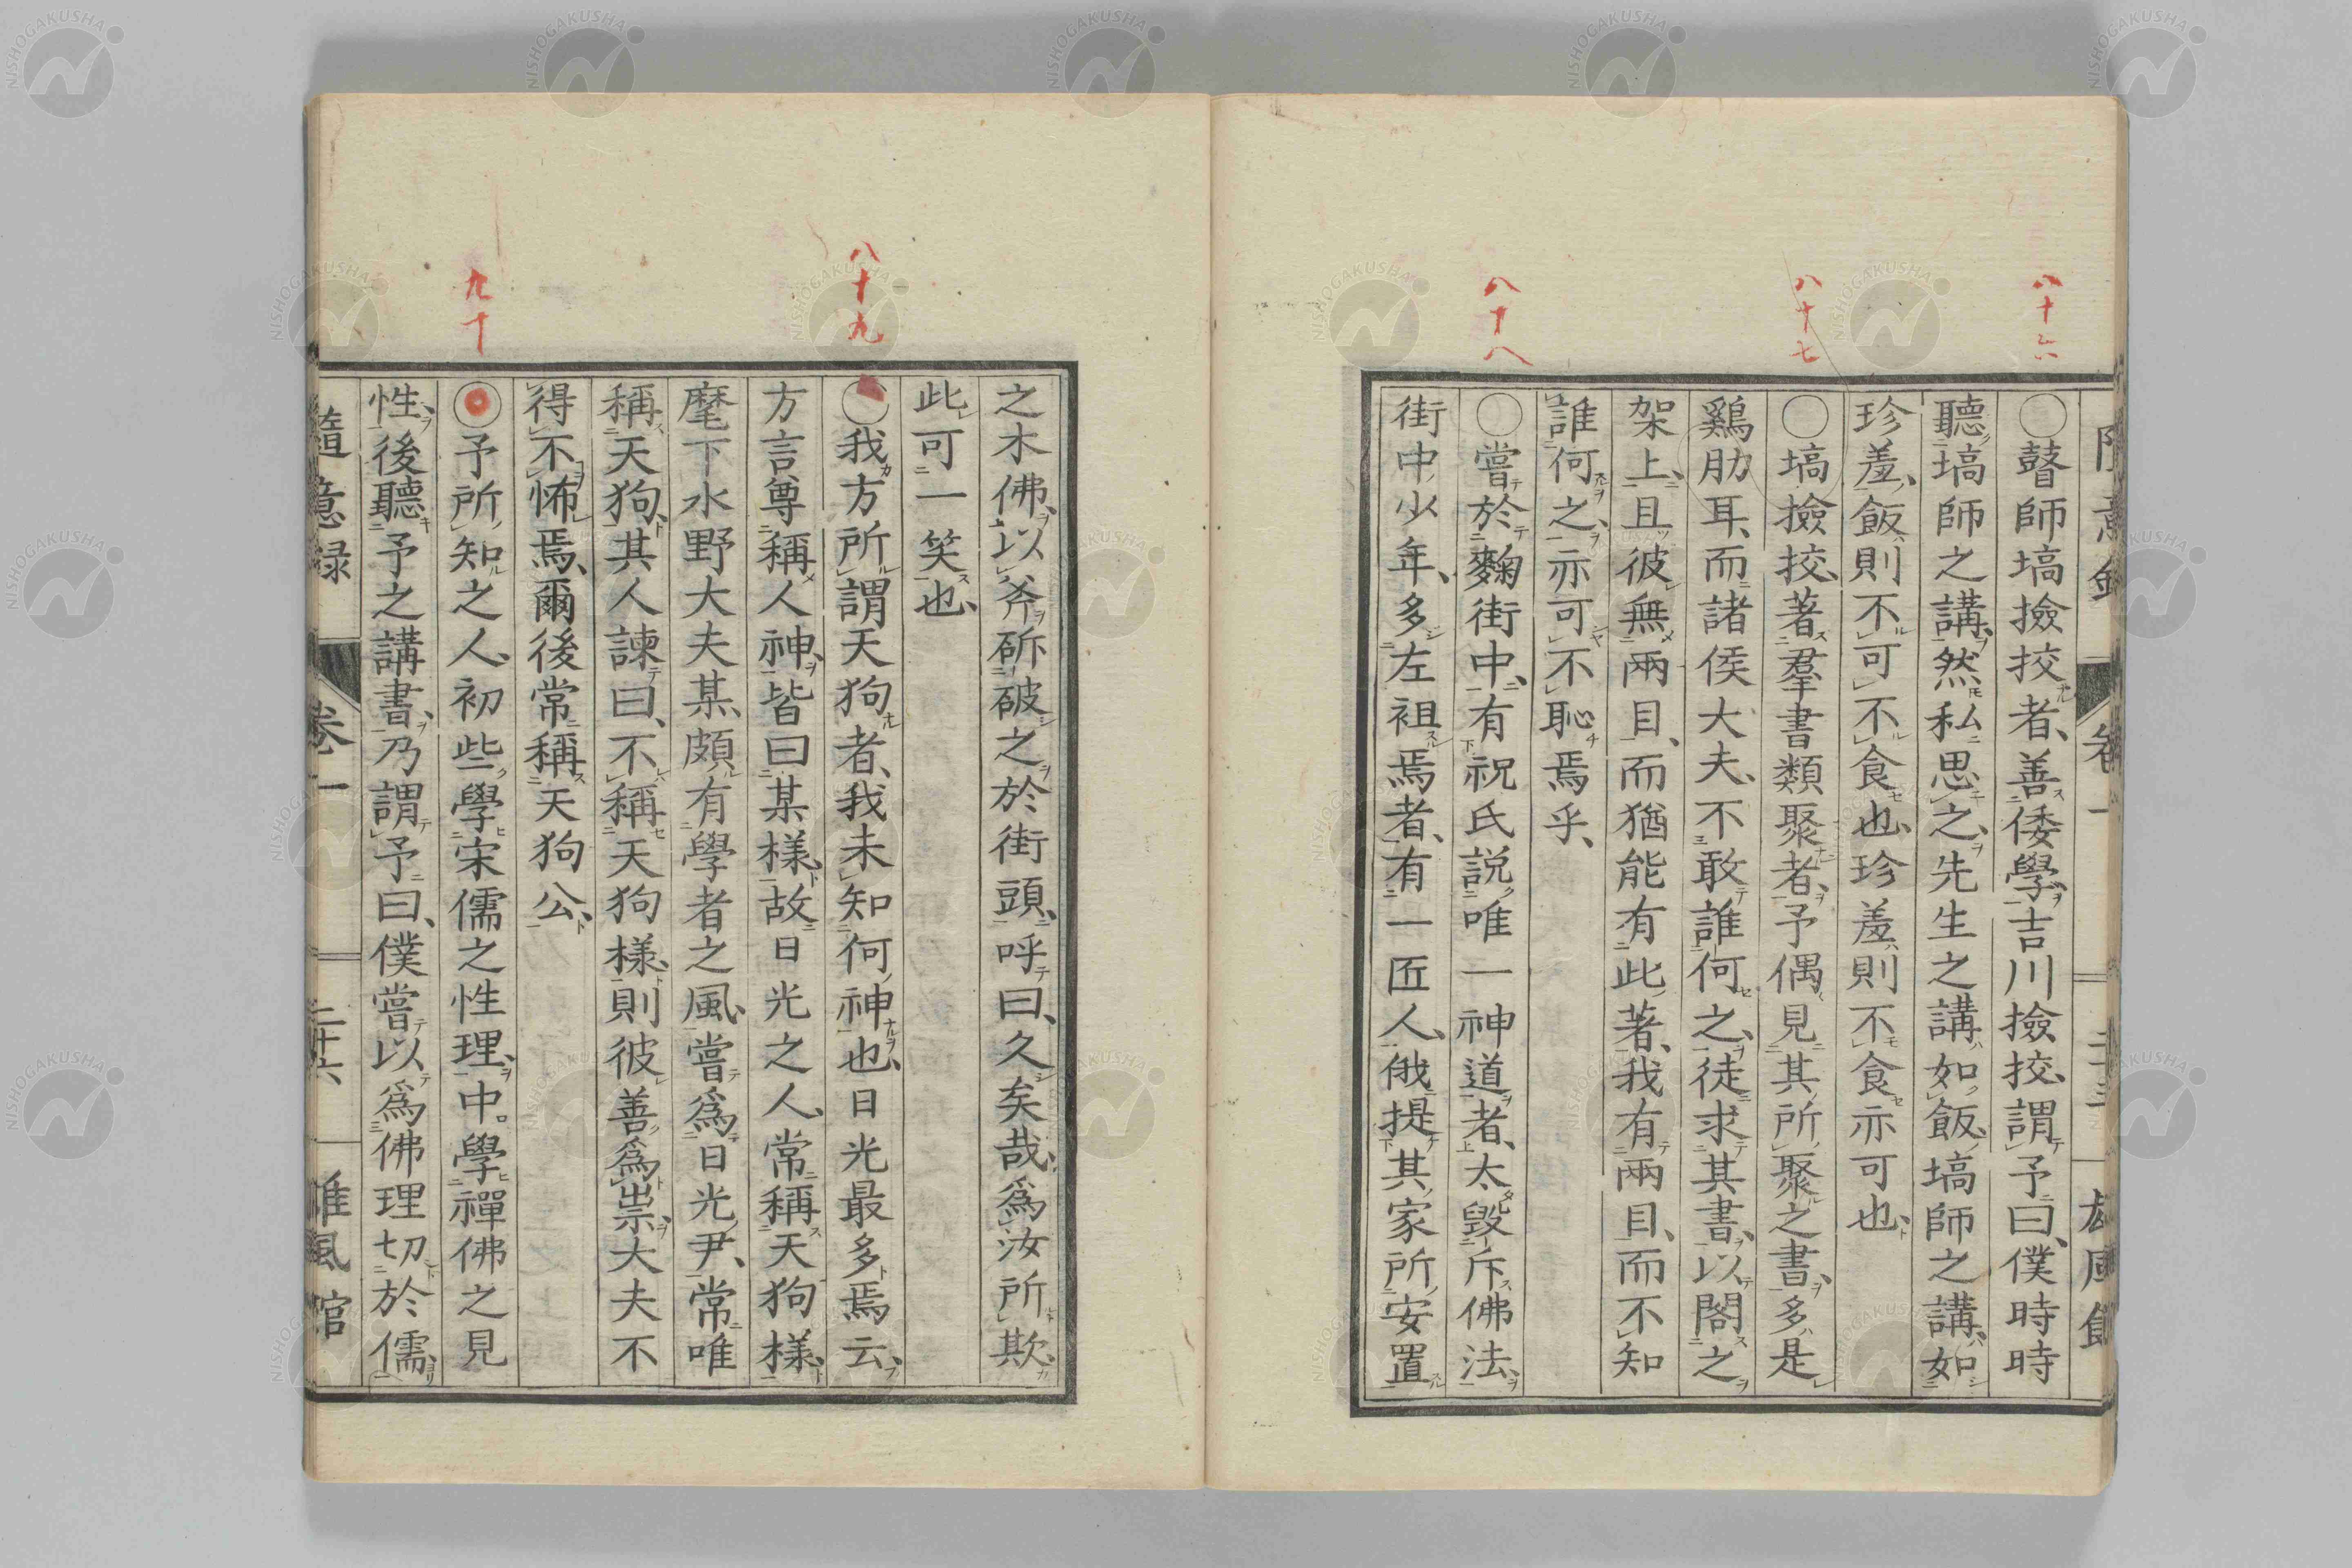 八十六
八十七
八十八
〇瞽師塙撿挍者、善倭學、吉川撿挍、謂予曰、僕時時
聽塙師之講、然私思之、先生之講、如飯、塙師之講、如
珍羞、飯則不可不食也、珍羞則不食亦可也、
〇塙撿挍、著羣書類聚者、予偶見其所聚之書、多是
鷄肋耳、而諸侯大夫、不敢誰何之、徒求其書、以閣之
架上、且彼無兩目、而猶能有此著、我有兩目、而不知
誰何之、亦可不恥焉乎、
〇嘗於麴街中、有祝氏説唯一神道者、太毀斥佛法、
街中少年、多左袒焉者、有一匠人、俄提其家所安置
八十九
九十
之木佛、以斧斫破之於街頭、呼曰、久矣哉、爲汝所欺、
此可一笑也、
〇我方所謂天狗者、我未知何神也、日光最多焉云、
方言尊稱人神、皆曰某樣、故日光之人、常稱天狗樣、
麾下水野大夫某、頗有學者之風、嘗爲日光尹、常唯
稱天狗、其人諫曰、不稱天狗樣、則彼善爲祟、大夫不
得不怖焉、爾後常稱天狗公、
〇予所知之人、初些學宋儒之性理、中學禪佛之見
性、後聽予之講書、乃謂予曰、僕嘗以爲佛理切於儒、
隨意録
卷一
二十六
雄風館
NISHOGAKUSHA